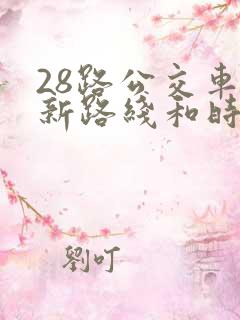 28路公交車
新路綫和時
劉叮